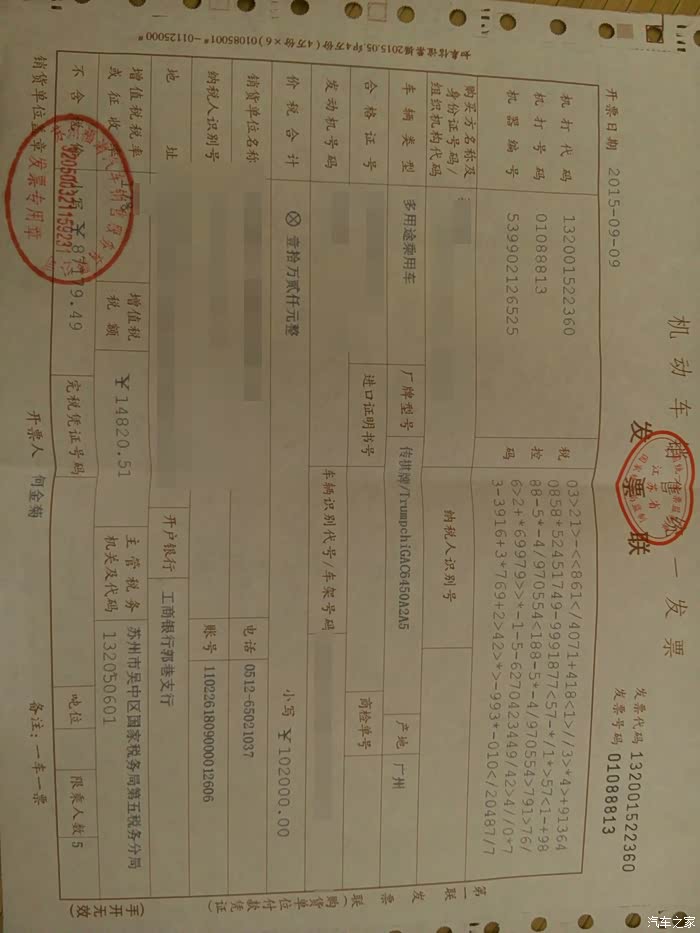 机动车销售统一发票
发票联
发票代码 132001522360
发票号码 01088813
开票日期 2015-09-09
机打代码 132001522360
机打号码 01088813
机器编号 539902126525
税控码
03>21>-<<861</4071+418<1>//3>*4>+91364
0858*52451749-9991877<57-*/1*>57<1-+98
88-5*-4/970554<188-5*-4/970554>791>76/
6>2+*69979>>*-1-5-6270423449/42>4//0*7
3-3916+3*769+2>42>*>-993*-010</20487/7
购买方名称及身份证号码/组织机构代码
纳税人识别号
车辆类型 多用途乘用车
厂牌型号 传祺牌/TrumpchiGAC6450A2A5
产地 广州
合格证号
进口证明书号
商检单号
发动机号码
车辆识别代号/车架号码
价税合计 ⊗壹拾万贰仟元整
小写 ￥102000.00
销货单位名称
电话 0512-65021037
纳税人识别号
账号 1102261809000012606
地址
开户银行 工商银行郭巷支行
增值税税率或征收率
增值税税额 ￥14820.51
主管税务机关及代码 苏州市吴中区国家税务局第五税务分局
132050601
不含税价 小写 ￥87179.49
完税凭证号码
吨位
限乘人数 5
销货单位盖章
开票人 何金菊
备注：一车一票
第一联 发票联（购货单位付款凭证）
（手开无效）
江苏省
汽车销售服务
320500321159231
发票专用章
汽车之家